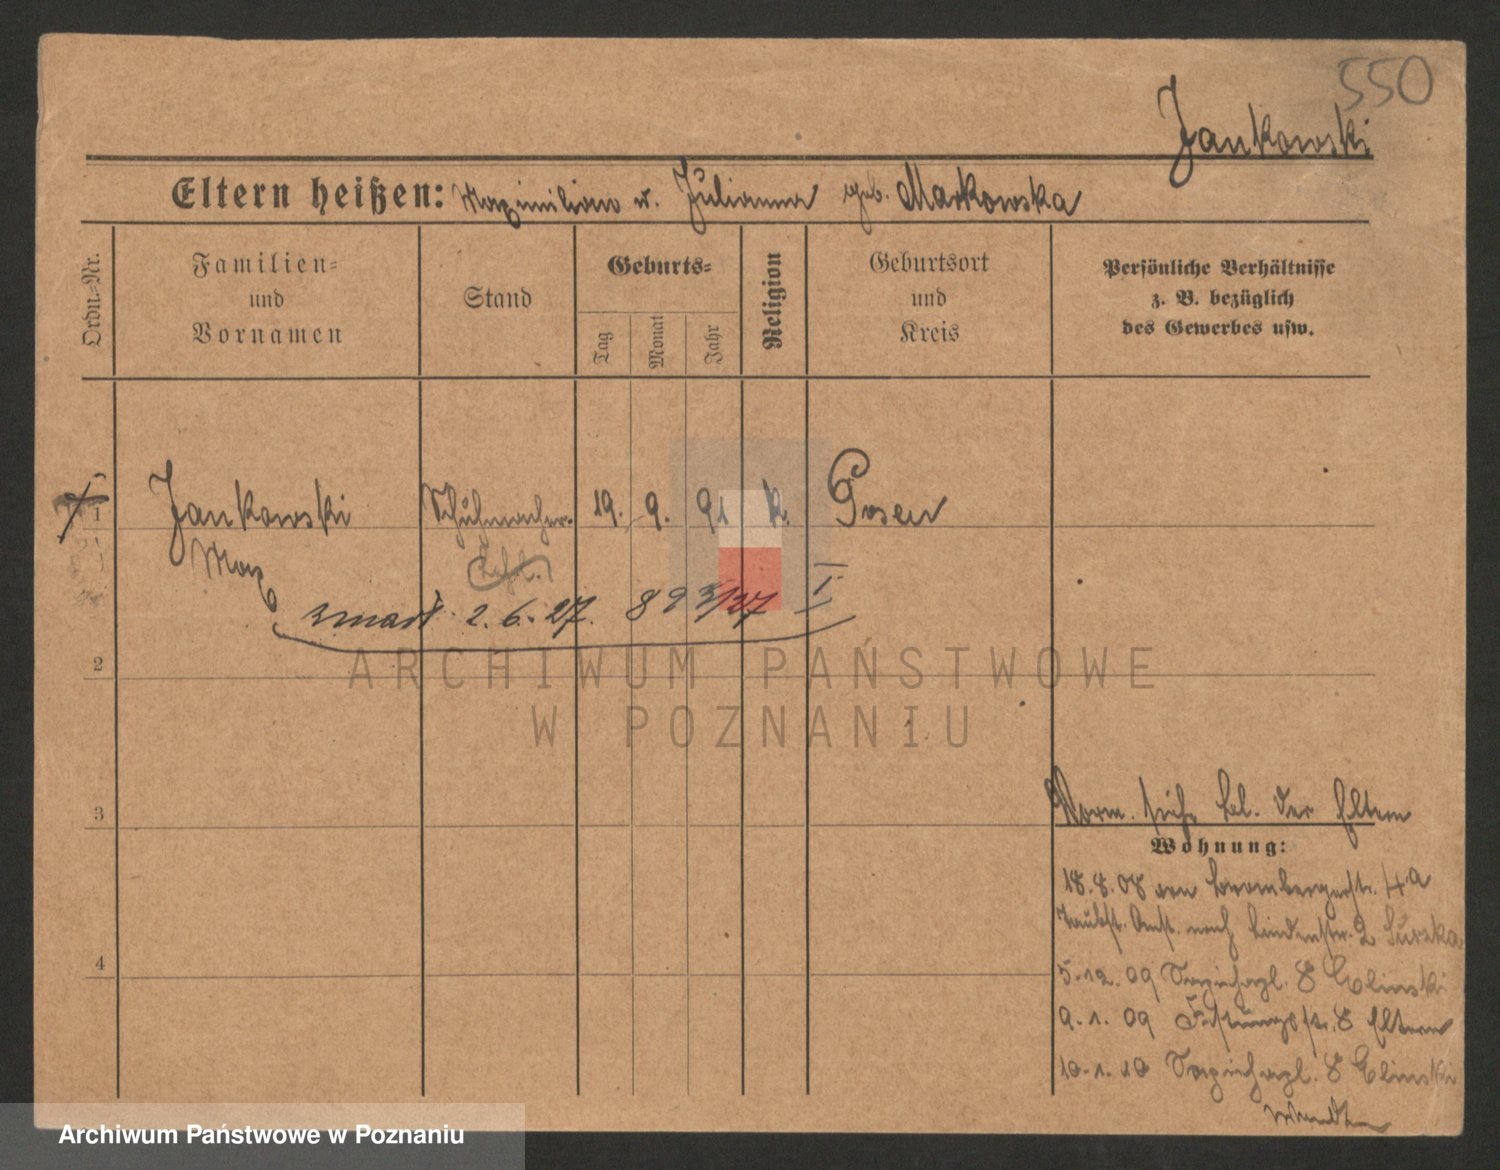 550
Jankowski
Eltern heißen: Maximilian u. Julianna geb. Markowska
Ordn.-Nr.
Familien- und Vornamen
Stand
Geburts-
Tag
Monat
Jahr
Religion
Geburtsort und Kreis
Persönliche Verhältnisse z. B. bezüglich des Gewerbes usw.
1
Jankowski Schuhmacher- 19. 9. 91 k. Posen
Max
Lehrl.
zmarł 2. 6. 27. 893/27 I
ARCHIWUM PAŃSTWOWE
W POZNANIU
2
3
4
Worm. siehe bl. der Eltern
Wohnung:
18.8.08 von Brombergerstr. 4a
Taubst. Anst. nach Lindenstr. 2
5.12.09 Sapiehapl. 8
9.1.09 Festungsstr. 8 Eltern
10.1.10 Sapiehapl. 8
Archiwum Państwowe w Poznaniu